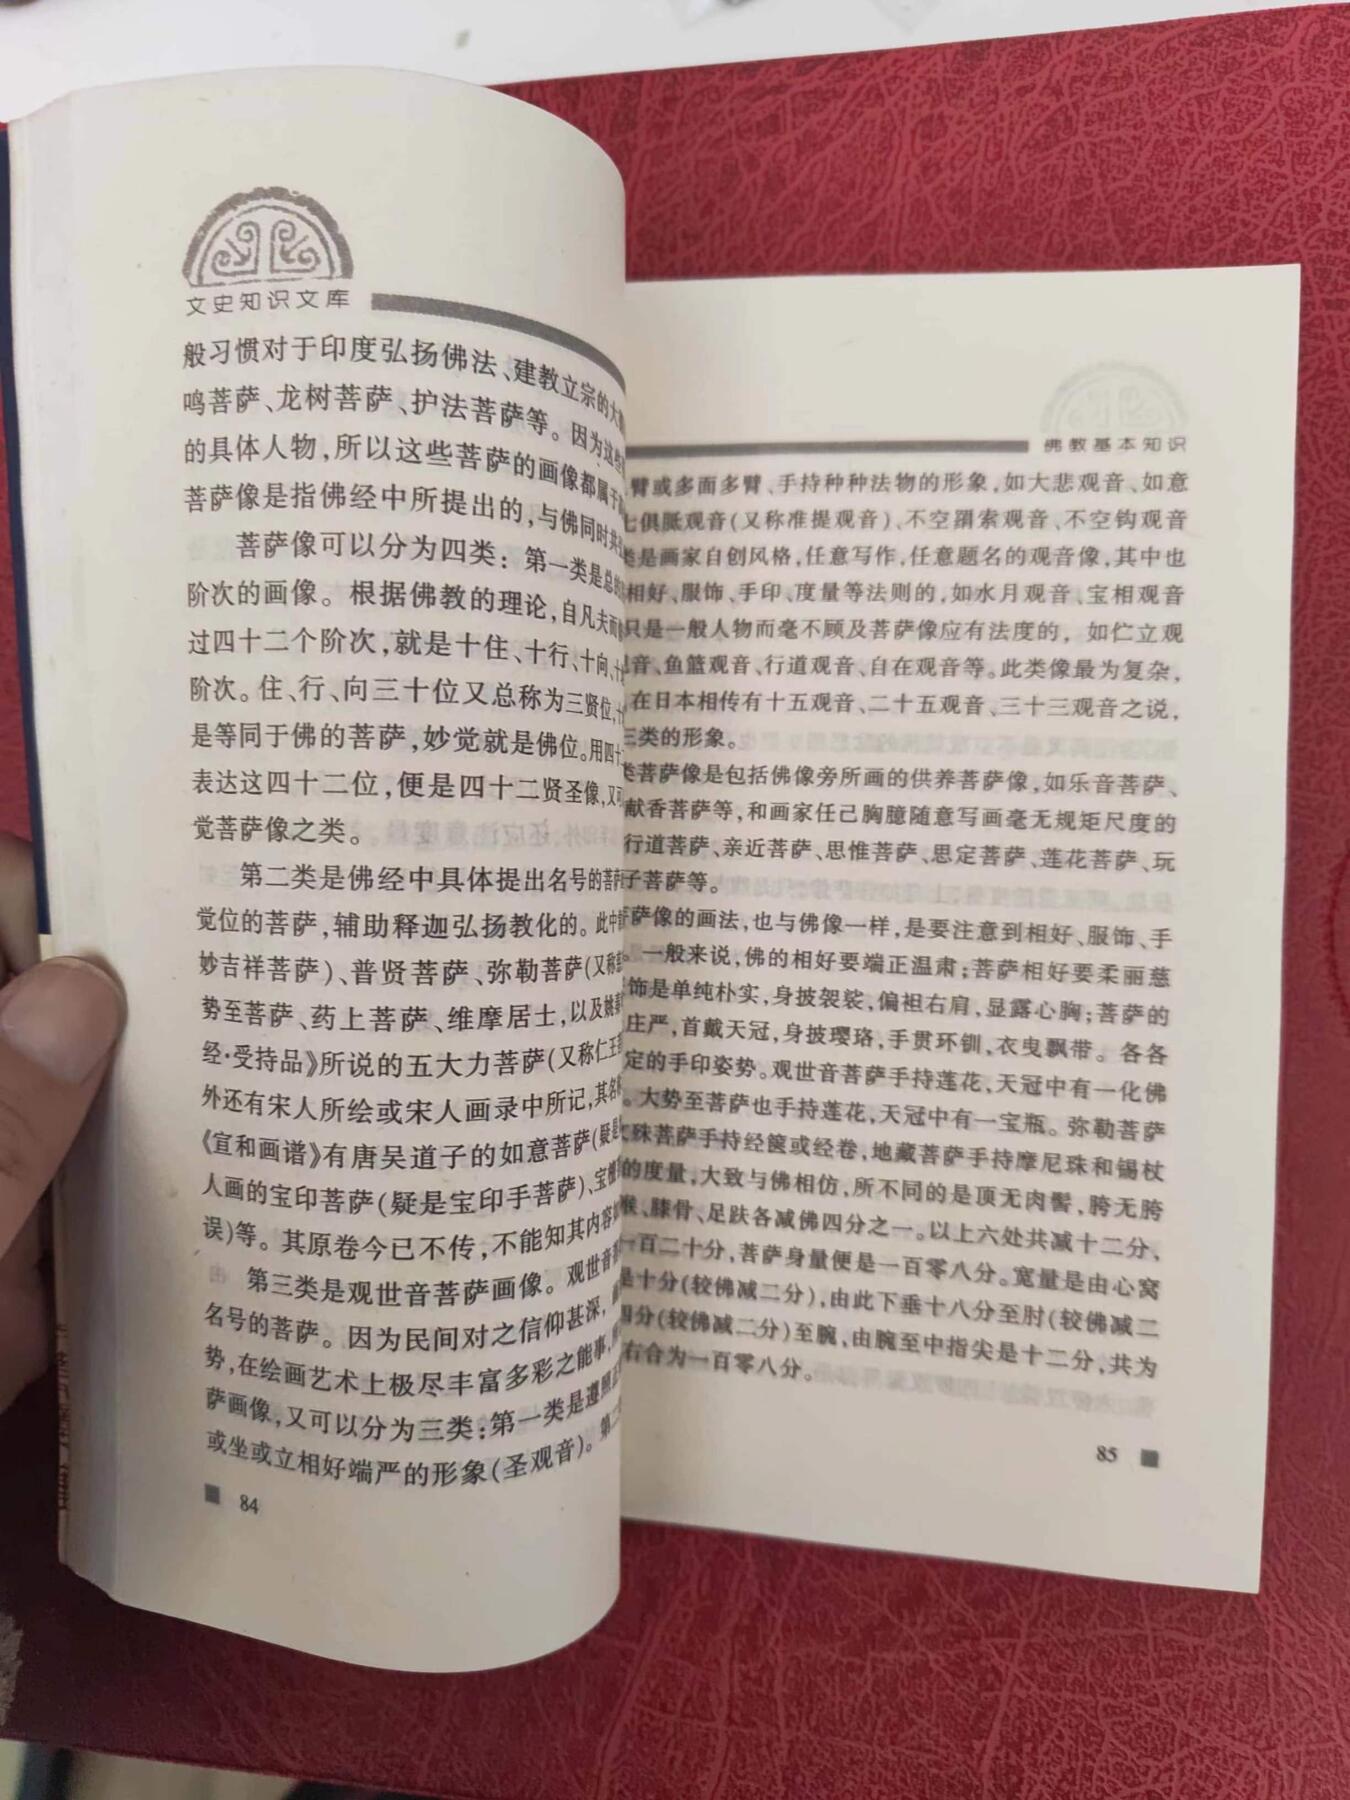 文史知识文库
般习惯对于印度弘扬佛法、建教立宗的大
鸣菩萨、龙树菩萨、护法菩萨等。因为这些
的具体人物，所以这些菩萨的画像都属于
菩萨像是指佛经中所提出的，与佛同时共
菩萨像可以分为四类：第一类是总的
阶次的画像。根据佛教的理论，自凡夫而
过四十二个阶次，就是十住、十行、十向、十
阶次。住、行、向三十位又总称为三贤位，十
是等同于佛的菩萨，妙觉就是佛位。用四十
表达这四十二位，便是四十二贤圣像，又可
觉菩萨像之类。
第二类是佛经中具体提出名号的菩萨
觉位的菩萨，辅助释迦弘扬教化的。此中
妙吉祥菩萨）、普贤菩萨、弥勒菩萨（又称
势至菩萨、药上菩萨、维摩居士，以及姚秦
经·受持品》所说的五大力菩萨（又称仁王
外还有宋人所绘或宋人画录中所记，其名
《宣和画谱》有唐吴道子的如意菩萨（疑是
人画的宝印菩萨（疑是宝印手菩萨）、宝檀
误）等。其原卷今已不传，不能知其内容
第三类是观世音菩萨画像。观世音
名号的菩萨。因为民间对之信仰甚深，
势，在绘画艺术上极尽丰富多彩之能事，
萨画像，又可以分为三类：第一类是遵照
或坐或立相好端严的形象（圣观音）。第二
84
佛教基本知识
臂或多面多臂、手持种种法物的形象，如大悲观音、如意
七俱胝观音（又称准提观音）、不空羂索观音、不空钩观音
类是画家自创风格，任意写作，任意题名的观音像，其中也
相好、服饰、手印、度量等法则的，如水月观音、宝相观音
只是一般人物而毫不顾及菩萨像应有法度的，如伫立观
音、鱼篮观音、行道观音、自在观音等。此类像最为复杂，
在日本相传有十五观音、二十五观音、三十三观音之说，
三类的形象。
类菩萨像是包括佛像旁所画的供养菩萨像，如乐音菩萨、
献香菩萨等，和画家任己胸臆随意写画毫无规矩尺度的
行道菩萨、亲近菩萨、思惟菩萨、思定菩萨、莲花菩萨、玩
子菩萨等。
萨像的画法，也与佛像一样，是要注意到相好、服饰、手
。一般来说，佛的相好要端正温肃；菩萨相好要柔丽慈
饰是单纯朴实，身披袈裟，偏袒右肩，显露心胸；菩萨的
庄严，首戴天冠，身披璎珞，手贯环钏，衣曳飘带。各各
定的手印姿势。观世音菩萨手持莲花，天冠中有一化佛
。大势至菩萨也手持莲花，天冠中有一宝瓶。弥勒菩萨
文殊菩萨手持经箧或经卷，地藏菩萨手持摩尼珠和锡杖
的度量，大致与佛相仿，所不同的是顶无肉髻，胯无胯
喉、膝骨、足趺各减佛四分之一。以上六处共减十二分，
一百二十分，菩萨身量便是一百零八分。宽量是由心窝
是十分（较佛减二分），由此下垂十八分至肘（较佛减二
四分（较佛减二分）至腕，由腕至中指尖是十二分，共为
右合为一百零八分。
85